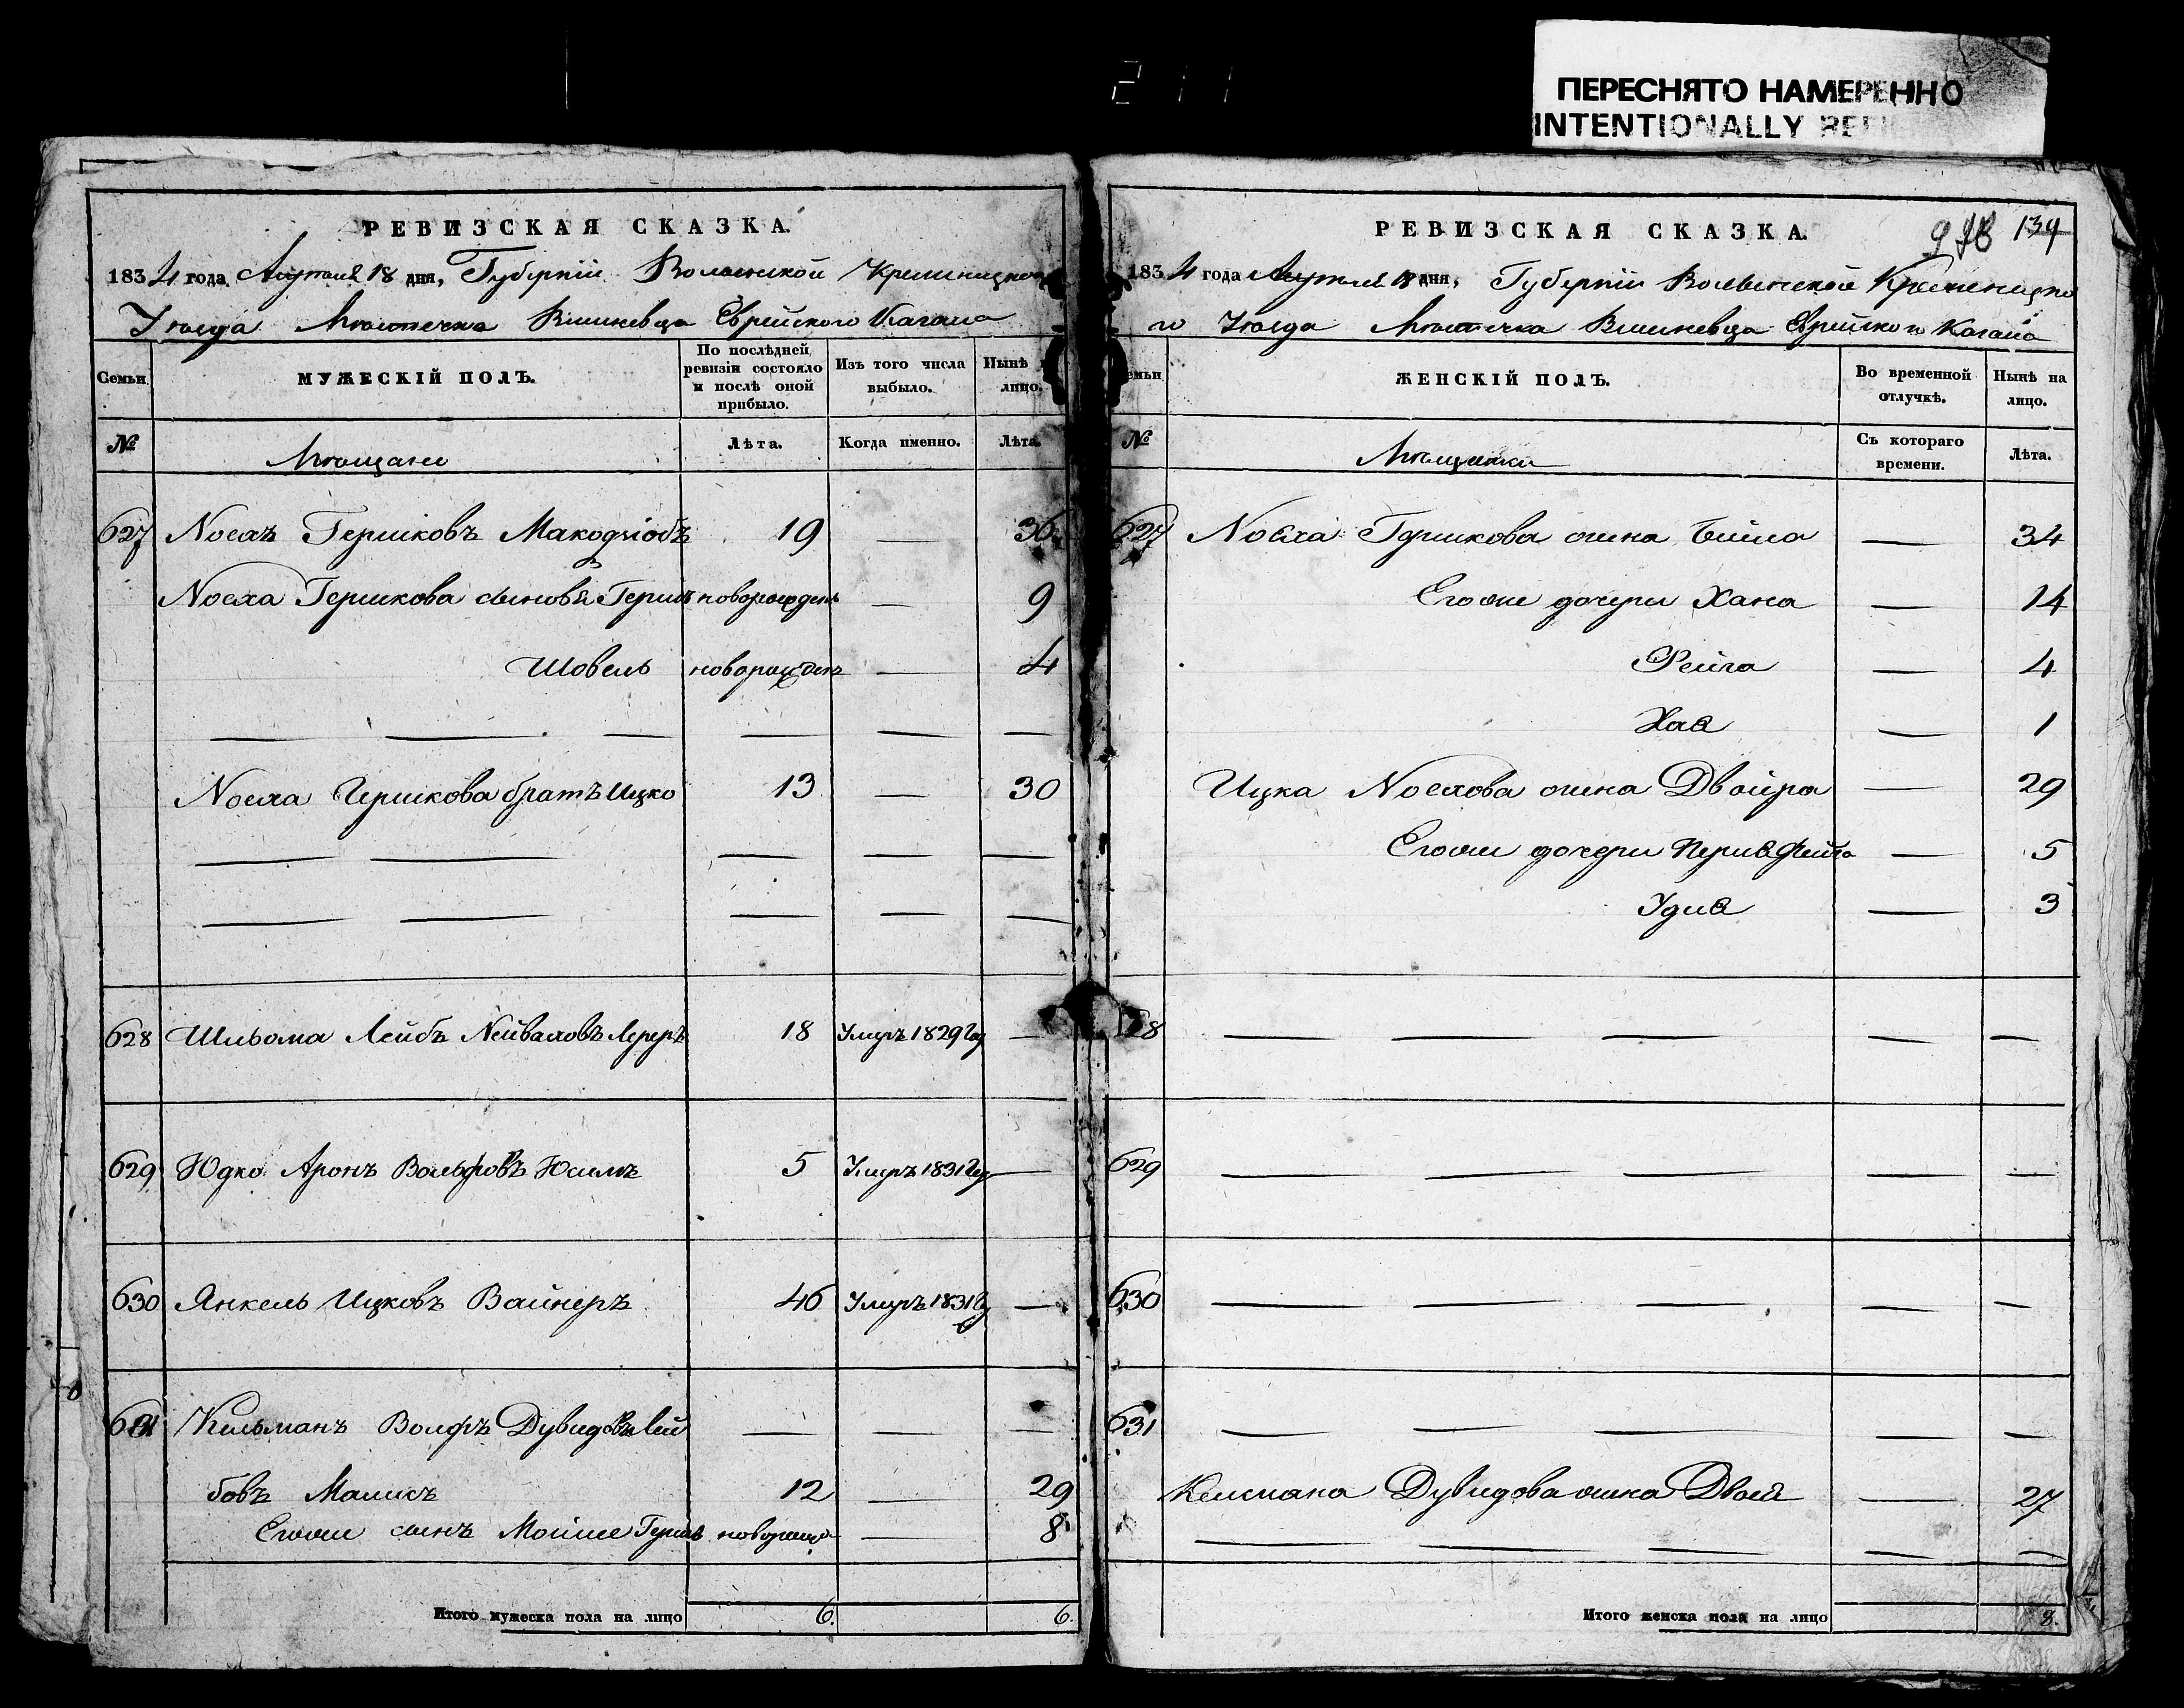 211
ПЕРЕСНЯТО НАМЕРЕННО
INTENTIONALLY
РЕВИЗСКАЯ СКАЗКА.
1834 года Апреля 18 дня, Губернiи Волынской Кременецкого
Уѣзда Мѣстечка Вишневца Еврейского Кагала
Семьи
МУЖЕСКIЙ ПОЛЪ.
По послѣдней ревизiи состояло и послѣ оной прибыло.
Изъ того числа выбыло.
Нынѣ лицо.
№
Мѣщане
Лѣта.
Когда именно.
Лѣта
627 Nоехъ Гершковъ 19 — 36
Nоеха Гершкова сыновья Гершъ новорожденъ — 9
Шовель новорожденъ — 4
Nоеха Гершкова братъ Ицко 13 — 30
628 Шльома Лейбъ Лереръ 18 Умеръ 1829 год —
629 Юдко Аронъ Вольфовъ 5 Умеръ 1831 год —
630 Янкель Ицковъ Вайнеръ 46 Умеръ 1831 —
631 Кельманъ Волфъ Дувидовъ Лей — — —
бовъ Малисъ 12 — 29
Егоже сынъ Мойше Гершъ новорожд — 8
Итого мужеска пола на лицо 6. 6.
978 134
РЕВИЗСКАЯ СКАЗКА.
1834 года Апреля 18 дня, Губернiи Волынской Кременецко
го Уѣзда Мѣстечка Вишневца Еврейского Кагала
емьи
ЖЕНСКIЙ ПОЛЪ.
Во временной отлучкѣ.
Нынѣ на лицо.
№
Мѣщанки
Съ котораго времени.
Лѣта.
627 Nоеха Гершкова жена Бейла — 34
Егоже дочери Хана — 14
Фейга — 4
Хая — 1
Ицка Nоехова жена Двойра — 29
Егоже дочери Перля Фейга — 5
Удля — 3
628 — — — — —
629 — — — — —
630 — — — — —
631 — — — — —
Келмана Дувидова жена Двоя — 27
Итого женска пола на лицо 8.